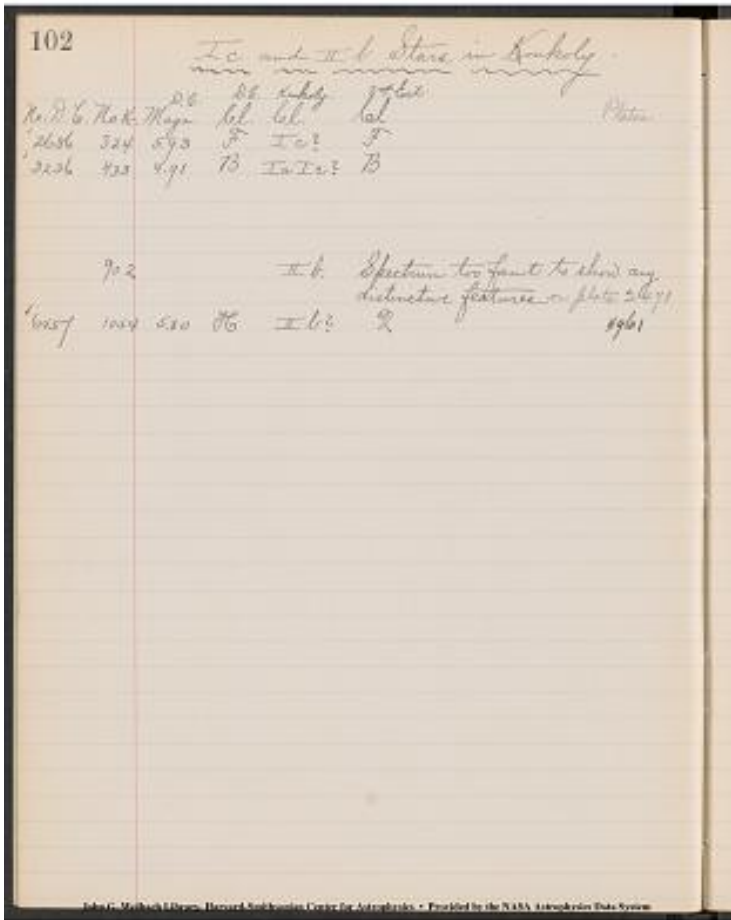 102
I c and II b Stars in Konkoly.
D.C. D.C. Konkoly
No. D.C. No K. Magn Cl. Cl. Cl Plates
2636 324 5.93 F I c? F
3236 433 4.91 B Ia Ic? B
902 II b. Spectrum too faint to show any
distinctive features on plate 2671
1054 5.80 H II b?
John G. Wolbach Library, Harvard-Smithsonian Center for Astrophysics • Provided by the NASA Astrophysics Data System